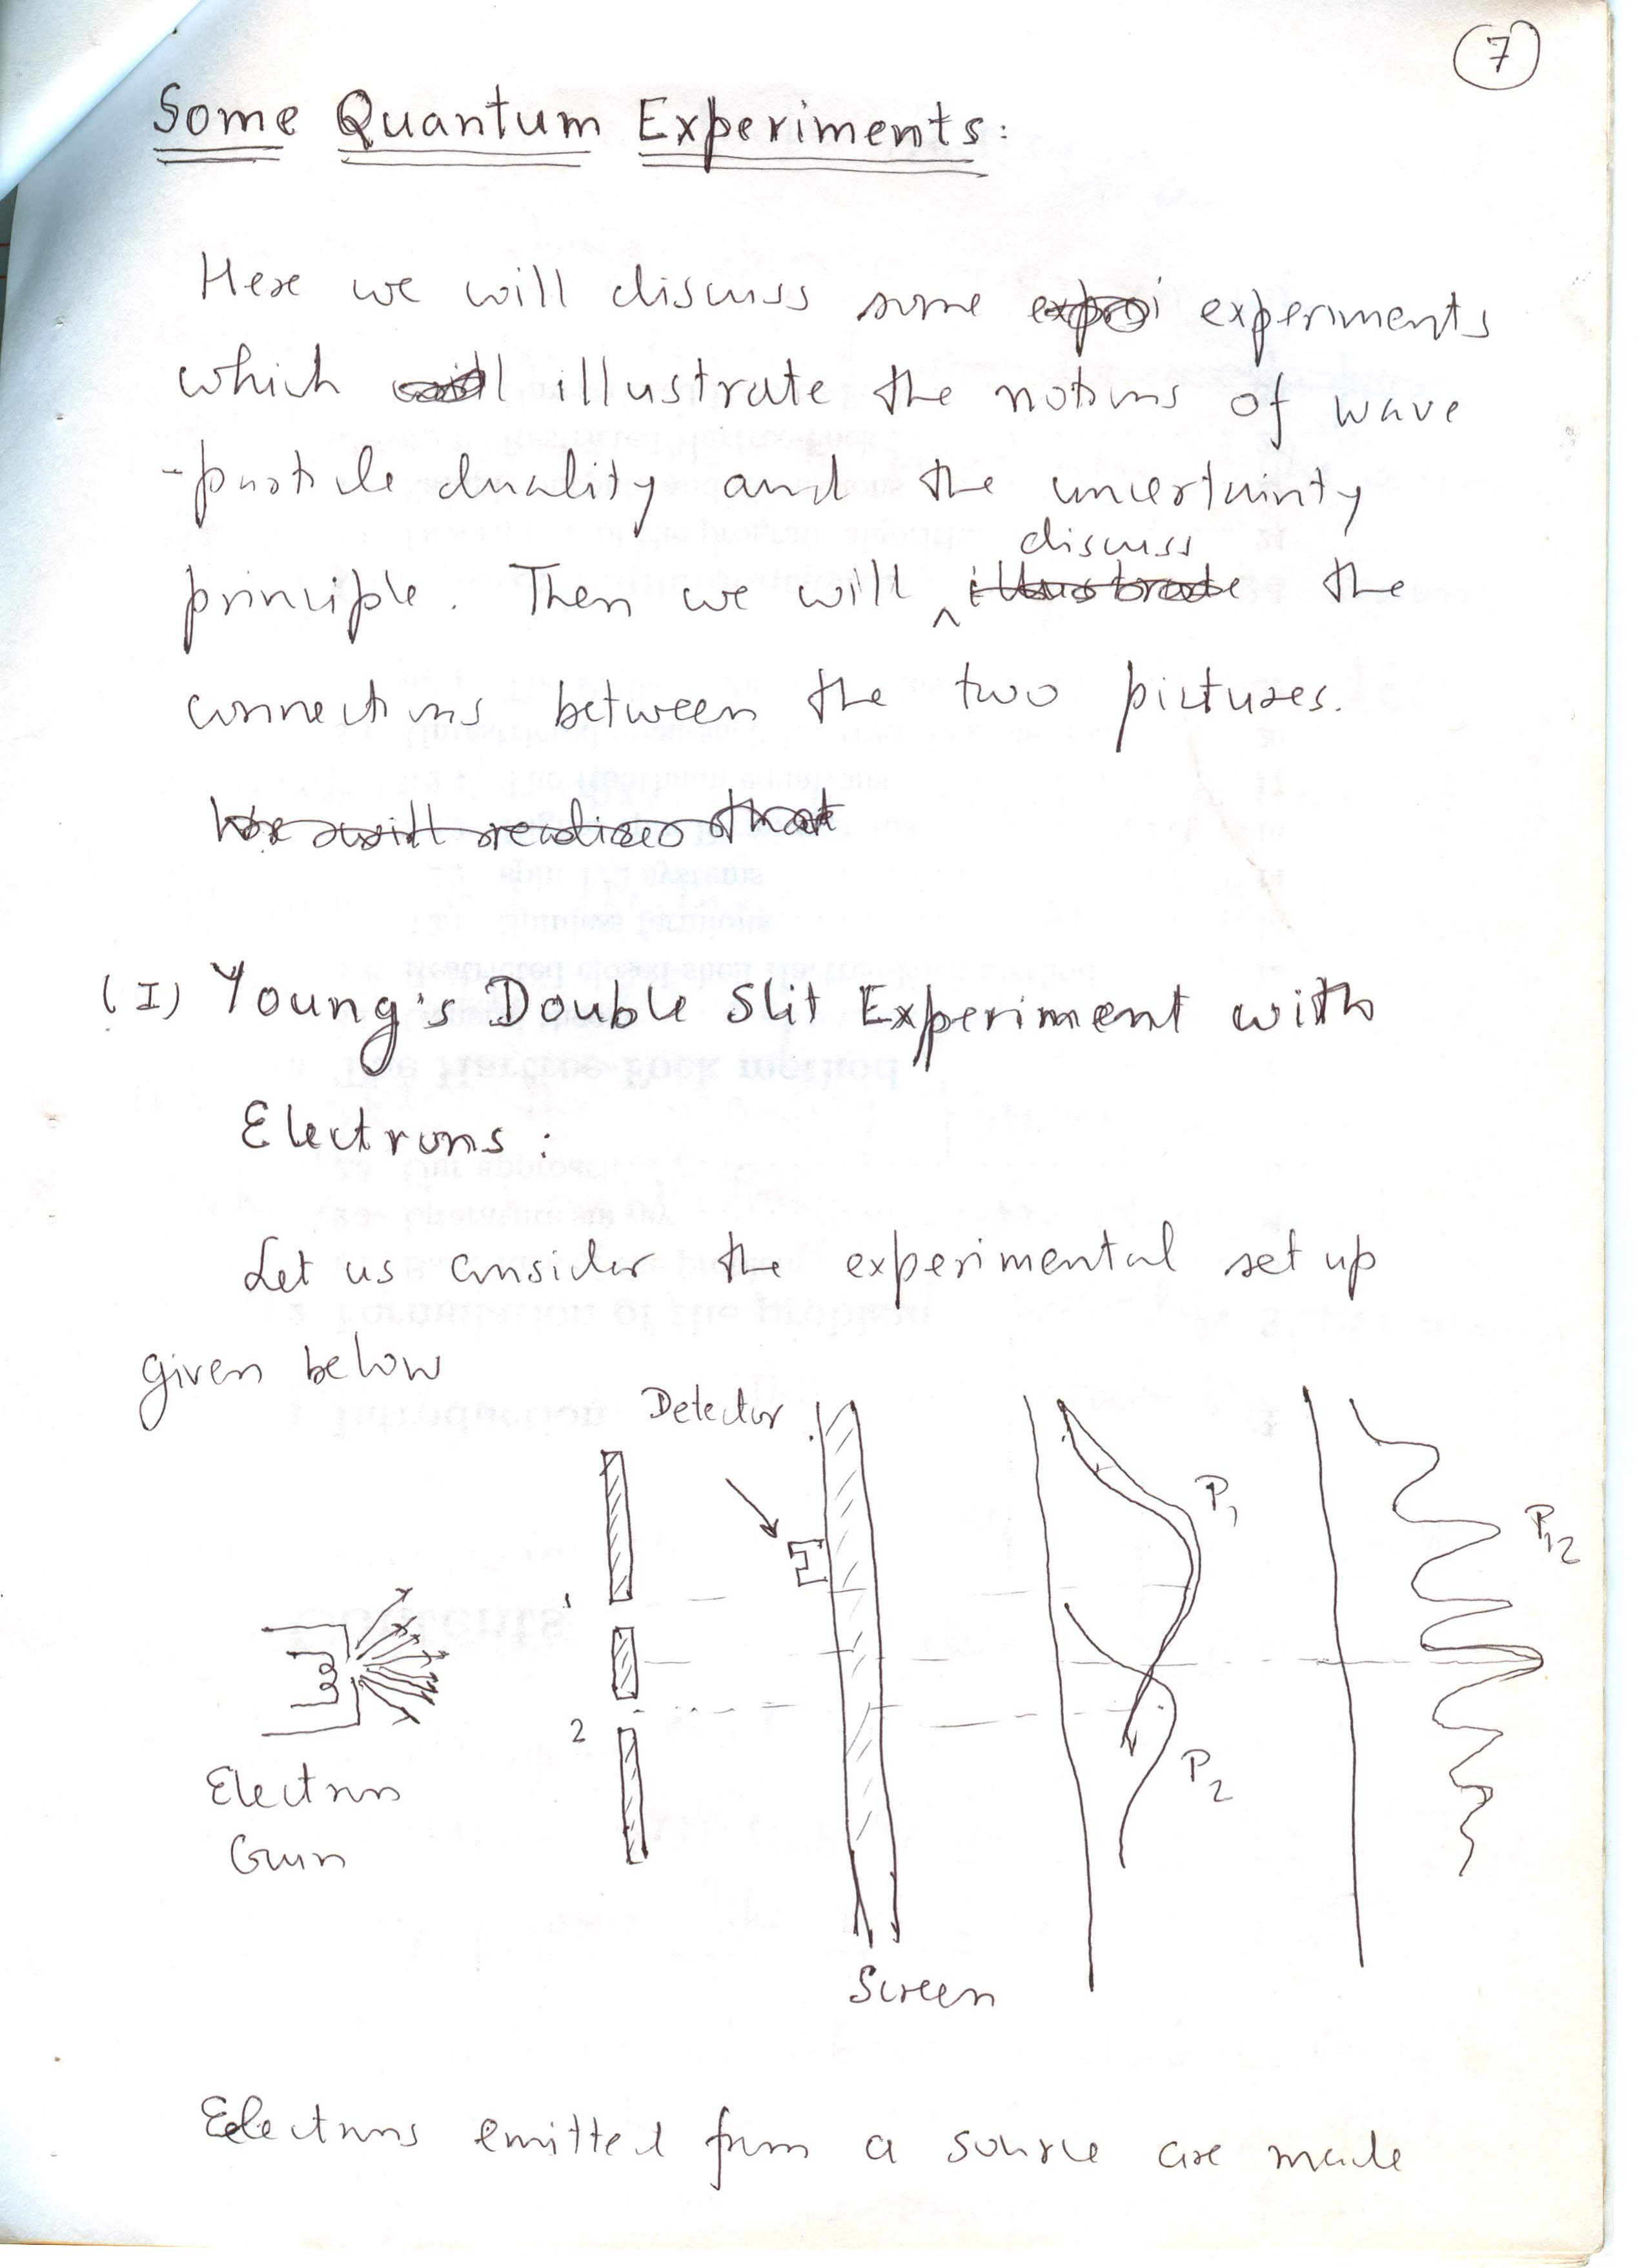 7
Some Quantum Experiments:
Here we will discuss some experiments
which illustrate the notions of wave
-particle duality and the uncertainty
discuss
principle. Then we will ^ illustrate the
connections between the two pictures.
We will realize that
(I) Young's Double Slit Experiment with
Electrons:
Let us consider the experimental set up
given below
Detector
P1
P12
1
2
P2
Electron
Gun
Screen
Electrons emitted from a source are made